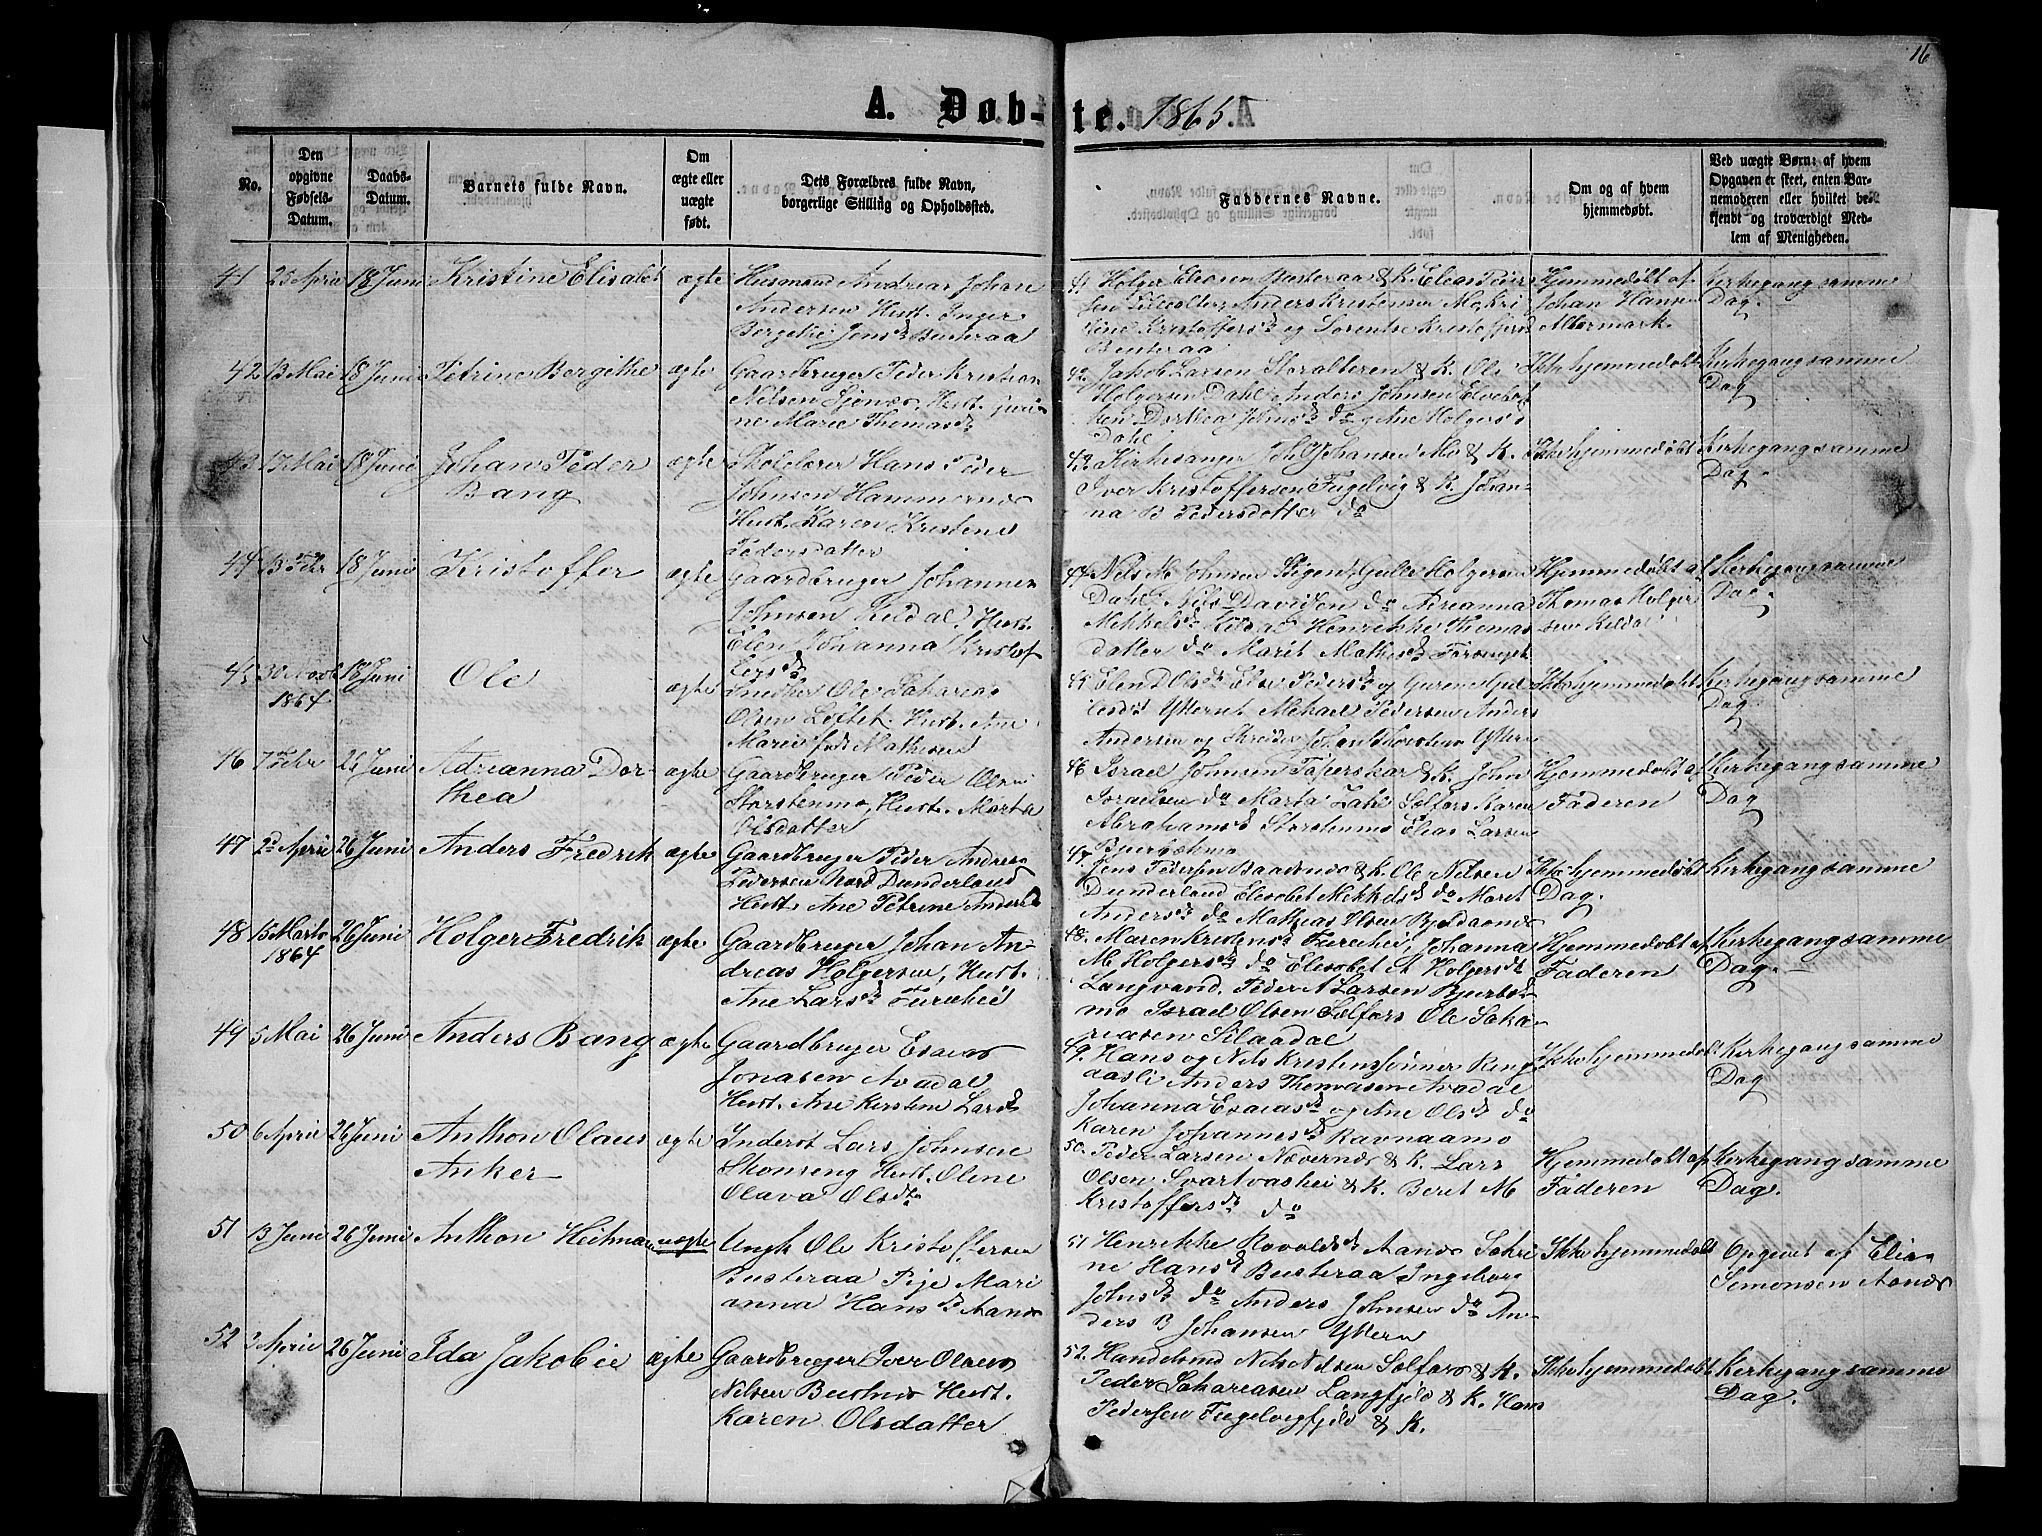 16
A. Døb-te. 1865.
No.
Den
opgivne
Fødsels-
Datum.
Daabs-
Datum.
Barnets fulde Navn.
Om
ægte eller
uægte
født.
Dets Forældres fulde Navn,
borgerlige Stilling og Opholdssted.
Faddernes Navne.
Om og af hvem
hjemmedøbt.
Ved uægte Børn: af hvem
Opgaven er skeet, enten Bar-
nemoderen eller hvilket be-
kjendt og troværdigt Med-
lem af Menigheden.
41 25 April 18 Juni Kristine Elisabet ægte
Husmand Andreas Johan
Andersen Hust. Inger
Bergitte Jensd. Busteraa
41 Holger Busteraa & K. Elias Peder
sen Anders Kristensen
Kristoffersd. og Lorentse Kristoffersd.
Busteraa
Hjemmedøbt af
Johan Hansen
Altermark.
Kirkegang samme
Dag.
42 13 Mai 18 Juni Petrine Bergithe ægte
Gaardbruger Peder Kristian
Nilsen Hust.
ne Marie Thomasd.
42. Jakob Larsen Storalteren & K. Ole
Holgersen Dahl Anders Johnsen
Dorthea Johnsd. do og Ane Holgersd.
Dahl
Ikke hjemmedøbt
Kirkegang samme
Dag
43 13 Mai 18 Juni Johan Peder
Bang
ægte
Skolelærer Hans Peder
Johnsen Hammernæs
Hust. Karen Kristens
Pedersdatter
43. Kirkesanger Johansen Mo & K.
Iver Kristoffersen Fugelvig & K. Johan-
na B Pedersdatter do
Ikke hjemmedøbt
Kirkegang samme
Dag
44 13 Febr 18 Juni Kristoffer ægte
Gaardbruger Johannes
Johnsen Kildal, Hust.
Elen Johanna Kristof
fersd.
44 Nils M Johnsen Gulle Holgersen
Dahl Nils Davidsen do Adrianna
Mikkelsd. Kildal Henrikke Thomas
datter do Marit Mathisd.
Hjemmedøbt af
Thomas Holger
sen Kildal
Kirkegang samme
Dag.
45 30 Novb 18 Juni
1864
Ole
ægte
Snedker Ole Sakarias
Olsen Hust. Ane
Marie født Mathisen
45 Elen D Olsd. Else Pedersd. og Gurine
Ytteren Mikael Pedersen Anders
Andersen og Johan Ytteren
Ikke hjemmedøbt
Kirkegang samme
Dag
46 7 Febr 26 Juni Adrianna Dor-
thea
ægte
Gaardbruger Peder Olsen
Storstenmo, Hust. Marta
Olsdatter
46 Israel Johnsen Tåperskar & K. John
Israelsen do Marta Zahl Selfors Karen
Abrahamsd. Storstenmo Elias Larsen
Bjerbekmo
Hjemmedøbt af
Faderen
Kirkegang samme
Dag
47 2 April 26 Juni Anders Fredrik ægte
Gaardbruger Peder Andreas
Pedersen Nord Dunderland
Hust. Ane Petrine Andersd.
47. Jens Pedersen & K. Ole Nilsen
Dunderland Elisabet Mikkelsd. do Marit
Andersd. do Mathias Olsen
Ikke hjemmedøbt
Dag.
Kirkegang samme
48 15 Marts 26 Juni
1864
Holger Fredrik
ægte
Gaardbruger Johan An-
dreas Holgersen, Hust.
Ane Larsd. Furuhei
48. Maren Kristensd. Furuhei, Johanna
M Holgersd. do Elisabet A Holgersd.
Langvand. Peder A Larsen Bjerbek-
mo Israel Olsen Selfors Ole Saka-
riasen Silaadal
Hjemmedøbt af
Faderen
Kirkegang samme
Dag.
49 5 Mai 26 Juni Anders Bang ægte
Gaardbruger Esaias
Jonasen Avadal
Hust. Ane Kirstine Larsd.
49. Hans og Nils Kristensønner Ring-
aasli Anders Thomasen Avadal
Johanna Esaiasd. og Ane Olsd. do
Karen Johannesd. Ravnaamo
Ikke hjemmedøbt
Kirkegang samme
Dag
50 6 April 26 Juni Anthon Olaus
Anker
ægte
Inderst Lars Johnsen
Skonseng Hust. Oline
Olava Olsd.
50. Peder Larsen Nævernæs & K. Lars
Olsen Svartvashei & K. Beret M
Kristoffersd. do
Hjemmedøbt af
Faderen
Kirkegang samme
Dag.
51 13 Juni 26 Juni Anthon Heitman uægte
Ungk Ole Kristoffersen
Busteraa Pige Mari
anna Hansd. Aanæs
51 Henrikke Aanæs
ne Hansd. Busteraa Ingeborg
Johnsd. do Anders Johnsen do An-
ders B Johansen Yttern
Ikke hjemmedøbt
Opgivet af Elias
Simonsen Aanæs
52 3 April 26 Juni Ida Jakobie ægte
Gaardbruger Iver Olaus
Nilsen Hust.
Karen Olsdatter
52. Handelsmd Nils Nilsen Selfors & K.
Peder Sakariasen Langfjeld & K. Hans
Pedersen Fugelvigfjeld & K.
Ikke hjemmedøbt
Kirkegang samme
Dag.